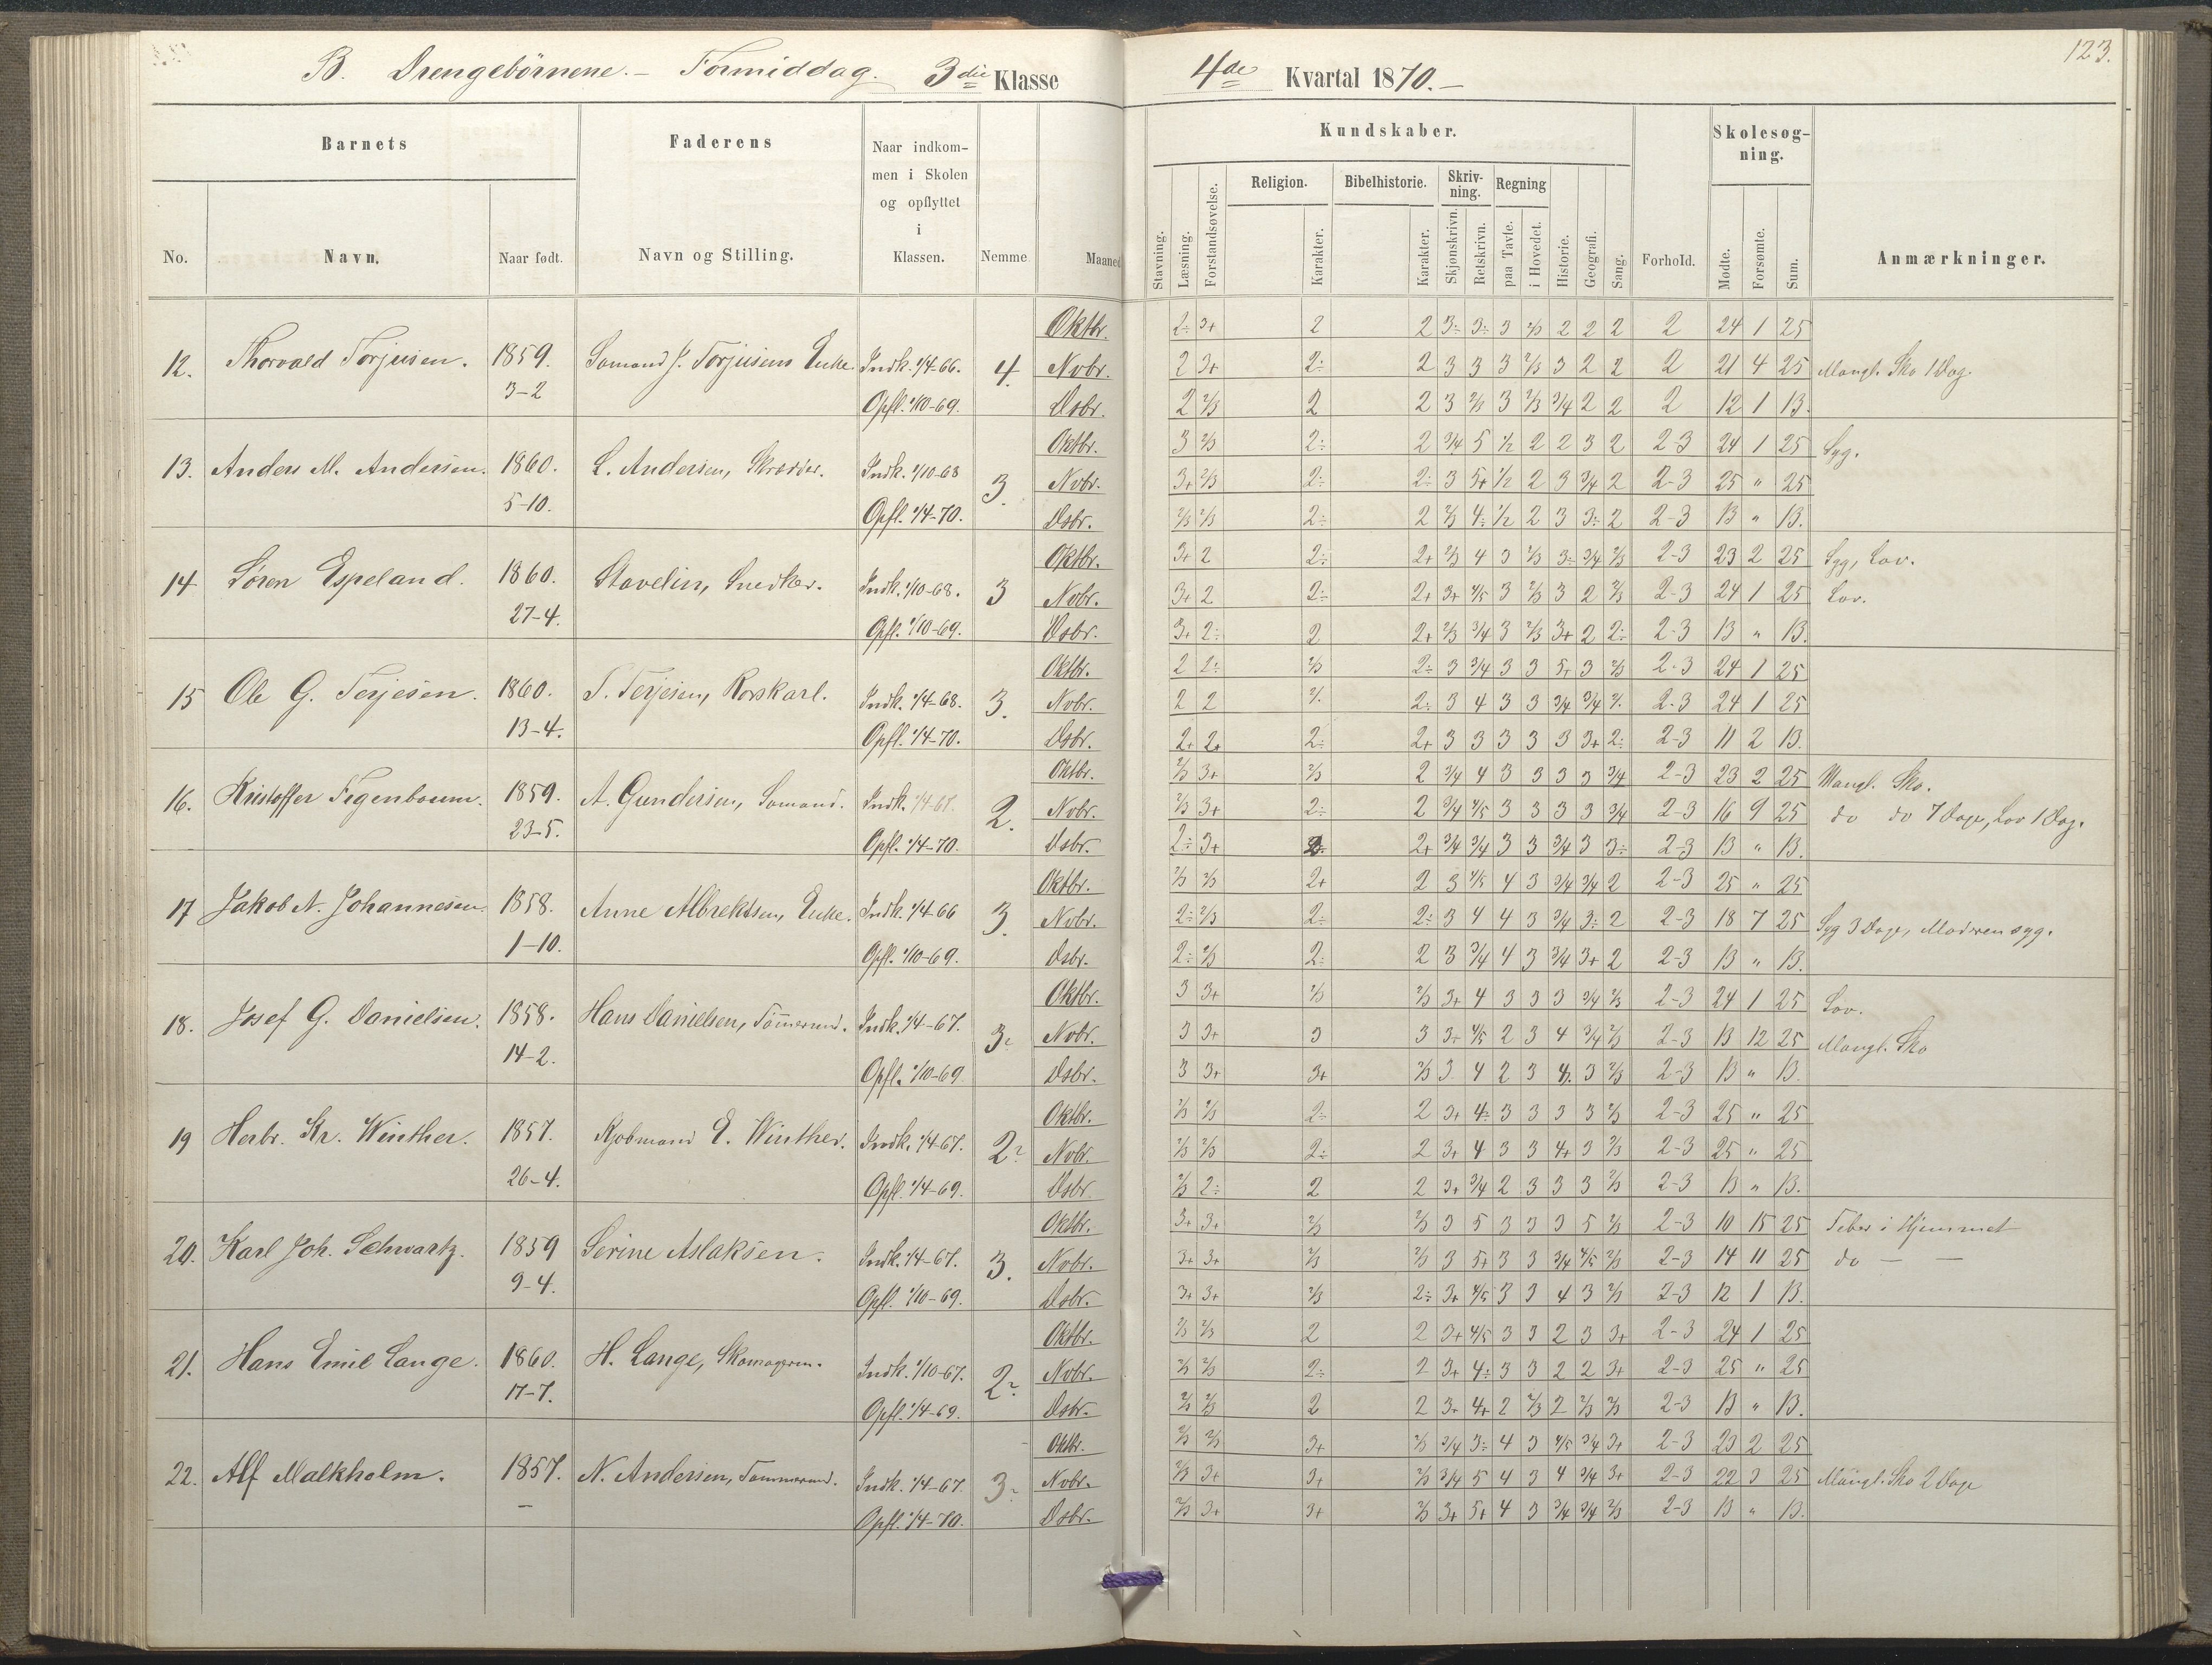 B. Drengebörnene. – Formiddag. 3die Klasse
4de Kvartal 1870. –
123.
Barnets
Faderens
Naar indkommen i Skolen og opflyttet i Klassen.
Nemme
Maaned
Kundskaber.
Skolesøgning.
No.
Navn.
Naar født.
Navn og Stilling.
Stavning.
Læsning.
Forstandsøvelse.
Religion.
Karakter.
Bibelhistorie.
Karakter.
Skrivning.
Skjønskrivn.
Retskrivn.
Regning
paa Tavle.
i Hovedet.
Historie.
Geografi.
Sang.
Forhold.
Mødte.
Forsømte.
Sum.
Anmærkninger.
12. Thorvald Torjusen. 1859. 3–2 Indk. 1/4-66. Opfl. 1/10-69. 4.
Oktbr. 2÷ 3+ 2 2 3÷ 3÷ 3 2/3 2 2 2 2 24 1 25
Novbr. 2 3+ 2÷ 2 3 3 3 2/3 3 2 2 2 21 4 25 Mangl. Sko 1 Dag.
Dsbr. 2 2/3 2 2 3 2/3 3 2/3 3/4 2 2 2 12 1 13.
13. Anders M. Andersen. 1860. 5–10. L. Andersen, Skrædder. Indk. 1/10-68 Opfl. 1/4-70. 3.
Oktbr. 3 2/3 2÷ 2 3/4 5 1/2 2 2 3 2 2-3 24 1 25 Syg.
Nobr. 3+ 2/3 2÷ 2÷ 3 5+ 1/2 2 3 3/4 2 2-3 25 " 25
Dsbr. 2/3 2/3 2÷ 2 2/3 4÷ 1/2 2 3 3÷ 2 2-3 13 " 13.
14 Sören Espeland. 1860. 27–4. Stavelin, Snedker. Indk. 1/10-68. Opfl. 1/10-69. 3
Oktbr. 3+ 2 2÷ 2+ 2/3 4 3 2/3 3÷ 3/4 2/3 2-3 23 2 25 Syg, Lov.
Nobr. 3+ 2 2÷ 2+ 3+ 4/5 3 2/3 3 2 2/3 2-3 24 1 25 Lov.
Dsbr. 3+ 2÷ 2 2+ 2/3 3/4 3 2/3 3+ 2 2÷ 2-3 13 " 13.
15 Ole G. Terjesen. 1860. 13–4. T. Terjesen, Rorskarl. Indk. 1/4-68. Opfl. 1/4-70. 3.
Oktbr. 2 2÷ 2/3 2÷ 3 3/4 3 3 5+ 3 2/3 2-3 24 1 25
Nobr. 2 2 2÷ 2÷ 3 4 3 3 3/4 3/4 2÷ 2-3 24 1 25
Dsbr. 2+ 2+ 2÷ 2+ 3 3 3 3 3 3+ 2÷ 2-3 11 2 13.
16. Kristoffer Figenboum. 1859. 23–5. A. Gundersen, Somand. Indk. Opfl. 1/4-70. 2.
Oktbr. 2/3 3+ 2/3 2 3/4 4 3 3 3 3 3/4 2-3 23 2 25 Mangl. Sko.
Nobr. 2/3 3+ 2÷ 2 3/4 4/5 3 3 3 3 3/4 2-3 16 9 25 do do 7 Dage, Lov 1 Dag.
Dsbr. 2÷ 3+ 2÷ 2+ 3/4 3/4 3 3 3/4 3 3÷ 2-3 13 " 13.
17 Jakob A. Johannesen. 1858. 1–10. Anne Albrektsen, Enke. Indk. 1/4-66 Opfl. 1/10-69. 3.
Oktbr. 2/3 2/3 2+ 2 3 4/5 4 3 3/4 3/4 2 2-3 25 " 25
Nobr. 2÷ 2/3 2÷ 2÷ 3 4 4 3 3/4 3÷ 2 2-3 18 7 25 Syg 3 Dage, Moderen syg.
Dsbr. 2÷ 2/3 2÷ 2 3 3/4 4 3 3/4 3+ 2 2-3 13 " 13.
18. Josef G. Danielsen. 1858. 14–2. Hans Danielsen, Tömmermd. Indk. 1/4-67. Opfl. 1/10-69. 3.
Oktbr. 3 3+ 2/3 2/3 3+ 4 3 3 3 3/4 2/3 2-3 24 1 25 Lov.
Nobr. 3 3+ 3 3 3+ 4/5 2 3 4 3/4 2/3 2-3 13 12 25 Mangl. Sko
Dsbr. 3 3+ 3+ 2/3 3 4 2 3 4. 3 2/3 2-3 13 " 13.
19 Herbr. Kr. Winther. 1857. 26–4. Kjobmand E. Winther. Indk. 1/4-67. Opfl. 1/4-69. 2
Oktbr. 2/3 2/3 2÷ 2 3+ 4÷ 3 3 3 3 2/3 2-3 25 " 25
Nobr. 2/3 2/3 2÷ 2 3+ 4 3 3 4+ 3 2/3 2-3 25 " 25
Dsbr. 2/3 2÷ 2 2 3+ 3/4 2 3 3 3 2/3 2-3 13 " 13.
20. Karl Joh. Schwartz. 1859 9–4. Serine Aslaksen. Indk. 1/4-67. Opfl. 1/10-69. 3.
Oktbr. 3+ 3+ 2/3 2/3 3 5 3 3 3 5 2/3 2-3 10 15 25 Feber i Hjemmet
Nobr. 3+ 3+ 2/3 2/3 3 5+ 3 3 3/4 4/5 2/3 2-3 14 11 25 do — —
Dsbr. 3+ 3+ 2/3 2÷ 3+ 4/5 3 3 4 3 2/3 2-3 12 1 13.
21. Hans Emil Lange. 1860. 17–7. H. Lange, Skomageren. Indk. 1/10-67. Opfl. 1/4-69. 2
Oktbr. 2/3 2/3 2 2 3+ 4/5 3 3 2 3 3+ 2-3 24 1 25
Nobr. 2/3 2/3 2÷ 2 3+ 4÷ 3 3 2 2 3+ 2-3 25 " 25
Dsbr. 2/3 2/3 2 2 3+ 4+ 2 2/3 2 2/3 2/3 2-3 13 " 13.
22. Alf Malkholm. 1857. – N. Andersen, Tommermd. Indk. 1/4-67. Opfl. 1/4-70. 3
Oktbr. 2/3 2/3 3+ 2/3 3/4 3÷ 4 3 4/5 3/4 3+ 2-3 23 2 25
Nobr. 2/3 3+ 3+ 2/3 3/4 5 4 3 4 3/4 3+ 2-3 22 3 25 Mangl. Sko 2 Dage
Dsbr. 2/3 3+ 3+ 2/3 3+ 5+ 4 3 3/4 3/4 2/3 2-3 13 " 13.